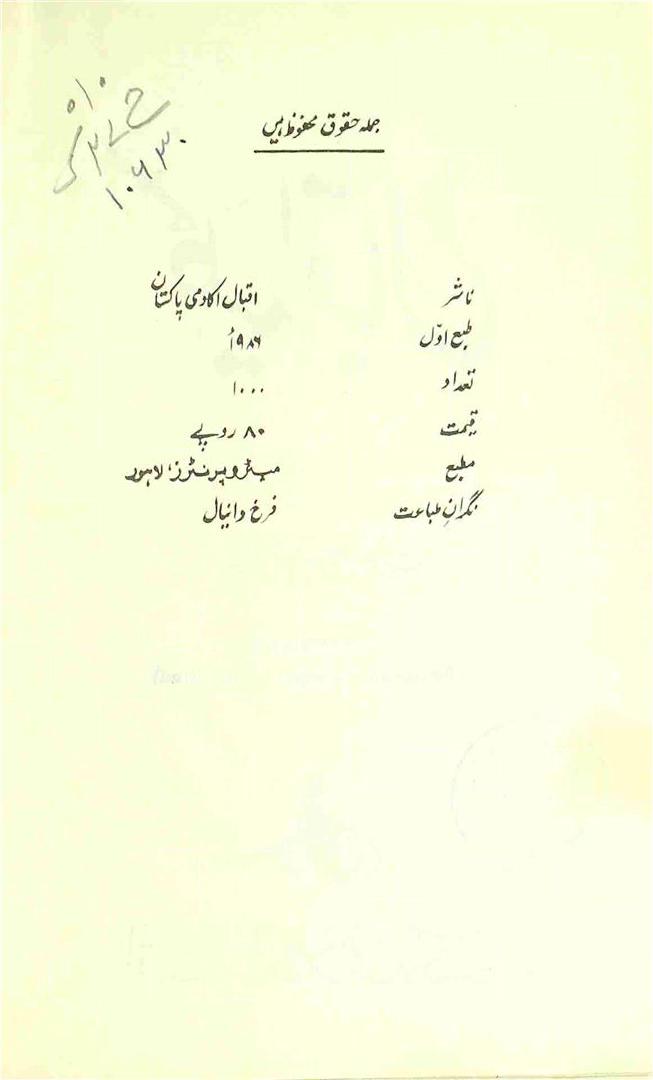 جملہ حقوق محفوظ ہیں
ناشر اقبال اکادمی پاکستان
طبع اوّل ۹۸۶اُ
تعداد ۱۰۰۰
قیمت ۸۰ روپے
مطبع میٹروپرنٹرز، لاہور
نگرانِ طباعت فرخ دانیال
۱۰۶۳۰